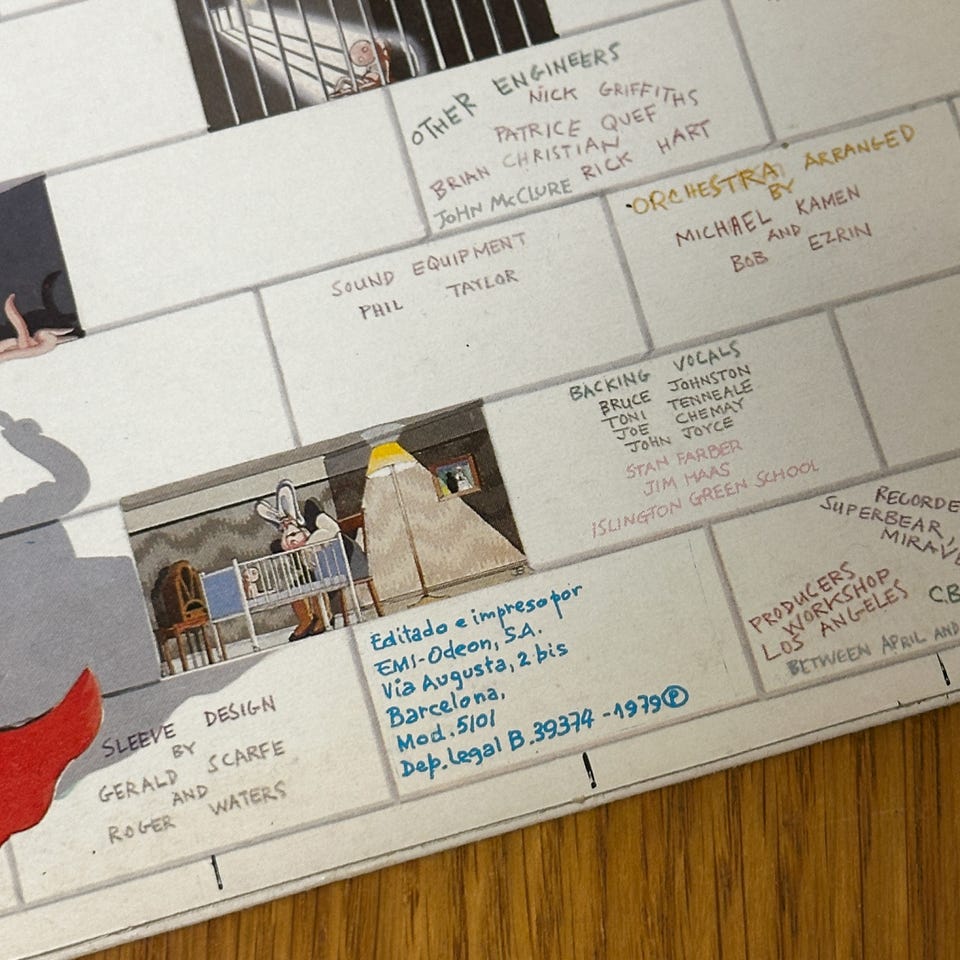 OTHER ENGINEERS
NICK GRIFFITHS
PATRICE QUEF
BRIAN CHRISTIAN
RICK HART
JOHN McCLURE
ORCHESTRA ARRANGED
BY
MICHAEL KAMEN
AND
BOB EZRIN
SOUND EQUIPMENT
PHIL TAYLOR
BACKING VOCALS
BRUCE JOHNSTON
TONI TENNEALE
JOE CHEMAY
JOHN JOYCE
STAN FARBER
JIM HAAS
ISLINGTON GREEN SCHOOL
RECORDE
SUPERBEAR,
MIRAV
PRODUCERS
WORKSHOP
LOS ANGELES
C.B
BETWEEN APRIL AND
Editado e impreso por
EMI-Odeon, S.A.
Via Augusta, 2 bis
Barcelona,
Mod. 5/01
Dep. legal B. 39374 -1979 Ⓟ
SLEEVE DESIGN
BY
GERALD SCARFE
AND
ROGER WATERS